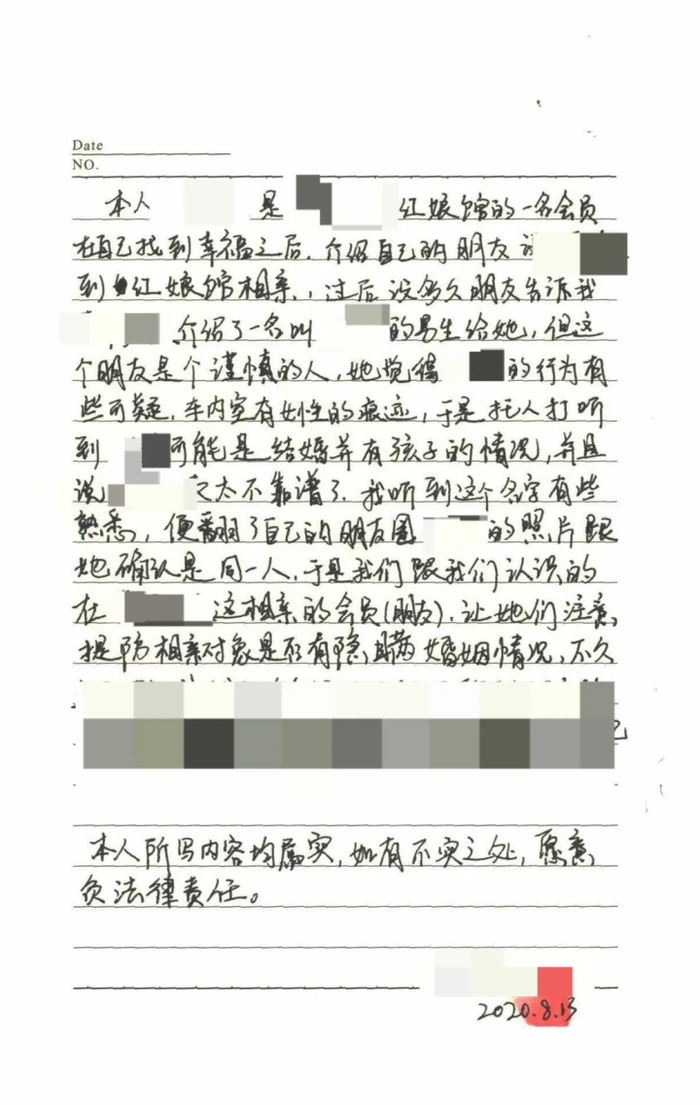 Date
NO.
本人 是 红娘馆的一名会员
在自己找到幸福之后，介绍自己的朋友
到红娘馆相亲，过后没多久朋友告诉我
介绍了一名叫 的男生给她，但这
个朋友是个谨慎的人，她觉得 的行为有
些可疑，车内室有女性的痕迹，于是托人打听
到 可能是结婚并有孩子的情况，并且
说 太不靠谱了，我听到这个名字有些
熟悉，便翻了自己的朋友圈 的照片跟
她确认是同一人，于是我们跟我们认识的
在 这相亲的会员(朋友)，让她们注意，
提防相亲对象是否有隐瞒婚姻情况，不久
本人所写内容均属实，如有不实之处，愿意
负法律责任。
2020.8.13